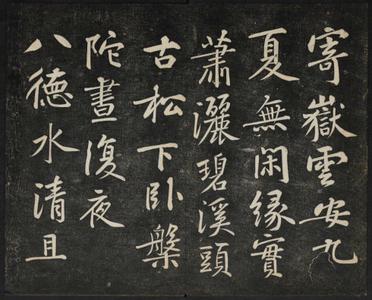 寄嶽雲安九
夏無閑緣實
蕭灑碧溪頭
古松下臥槃
陀晝復夜
八德水清且